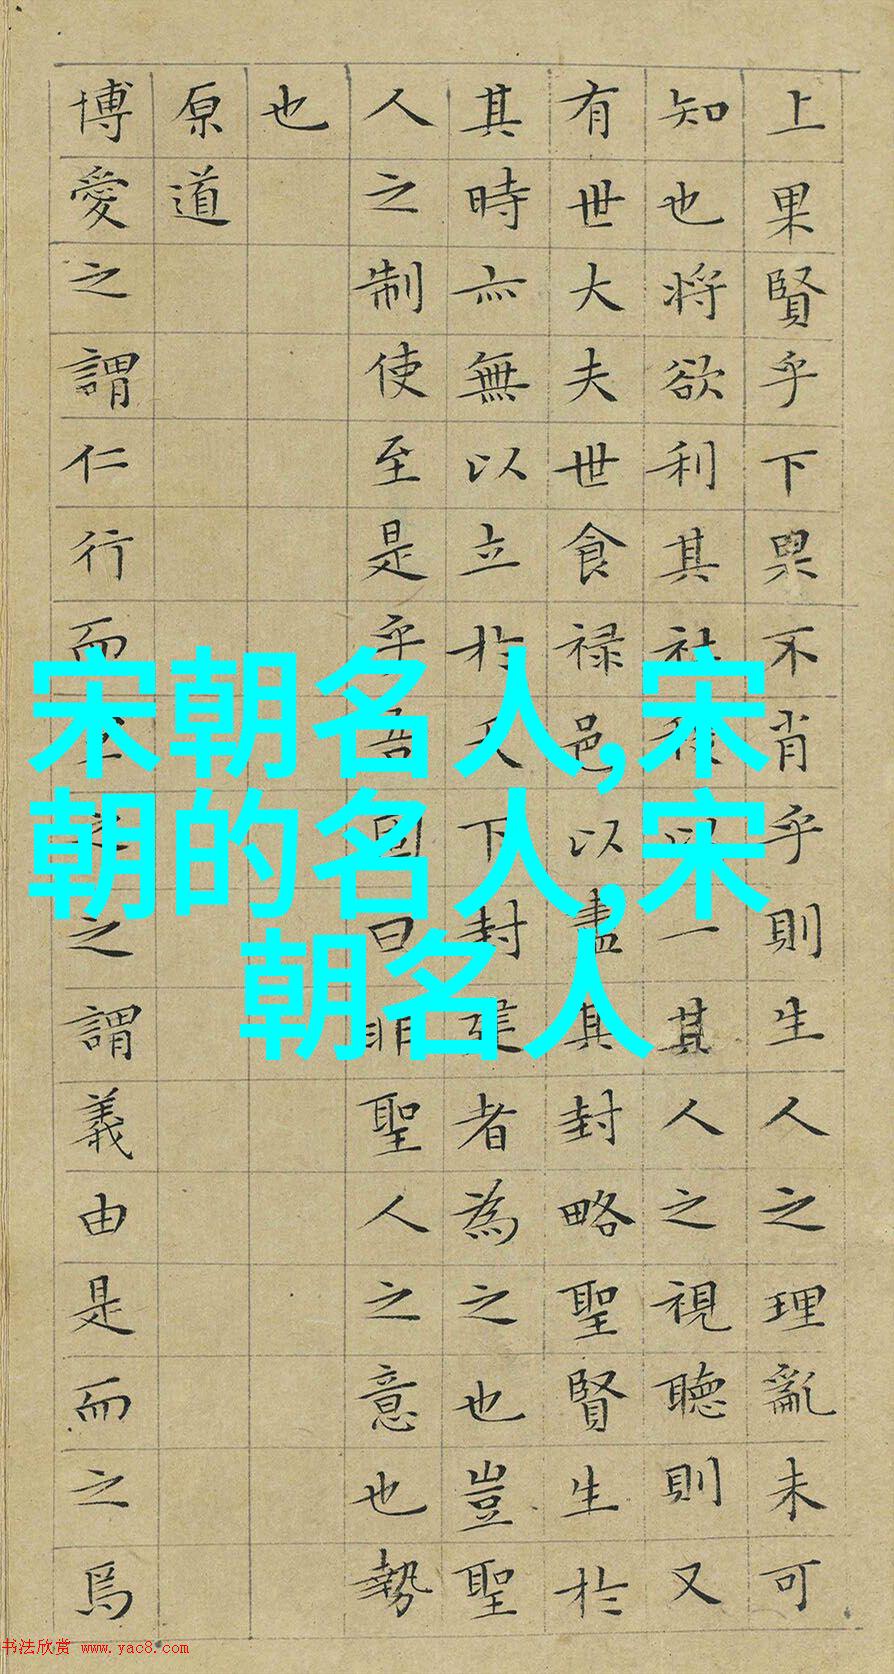 上果賢乎下果不肖乎則生人之理亂未可
知也將欲利其社以一其人之視聽則又
有世大夫世食禄邑以盡其封略聖賢生於
其時亦無以立於天下封建者為之也豈聖
人之制使至是乎吾固曰非聖人之意也勢
也
原道
博愛之謂仁行而之謂義由是而之焉
宋朝名人,宋
朝的名人,宋
朝名人
书法欣赏 www.yac8.com